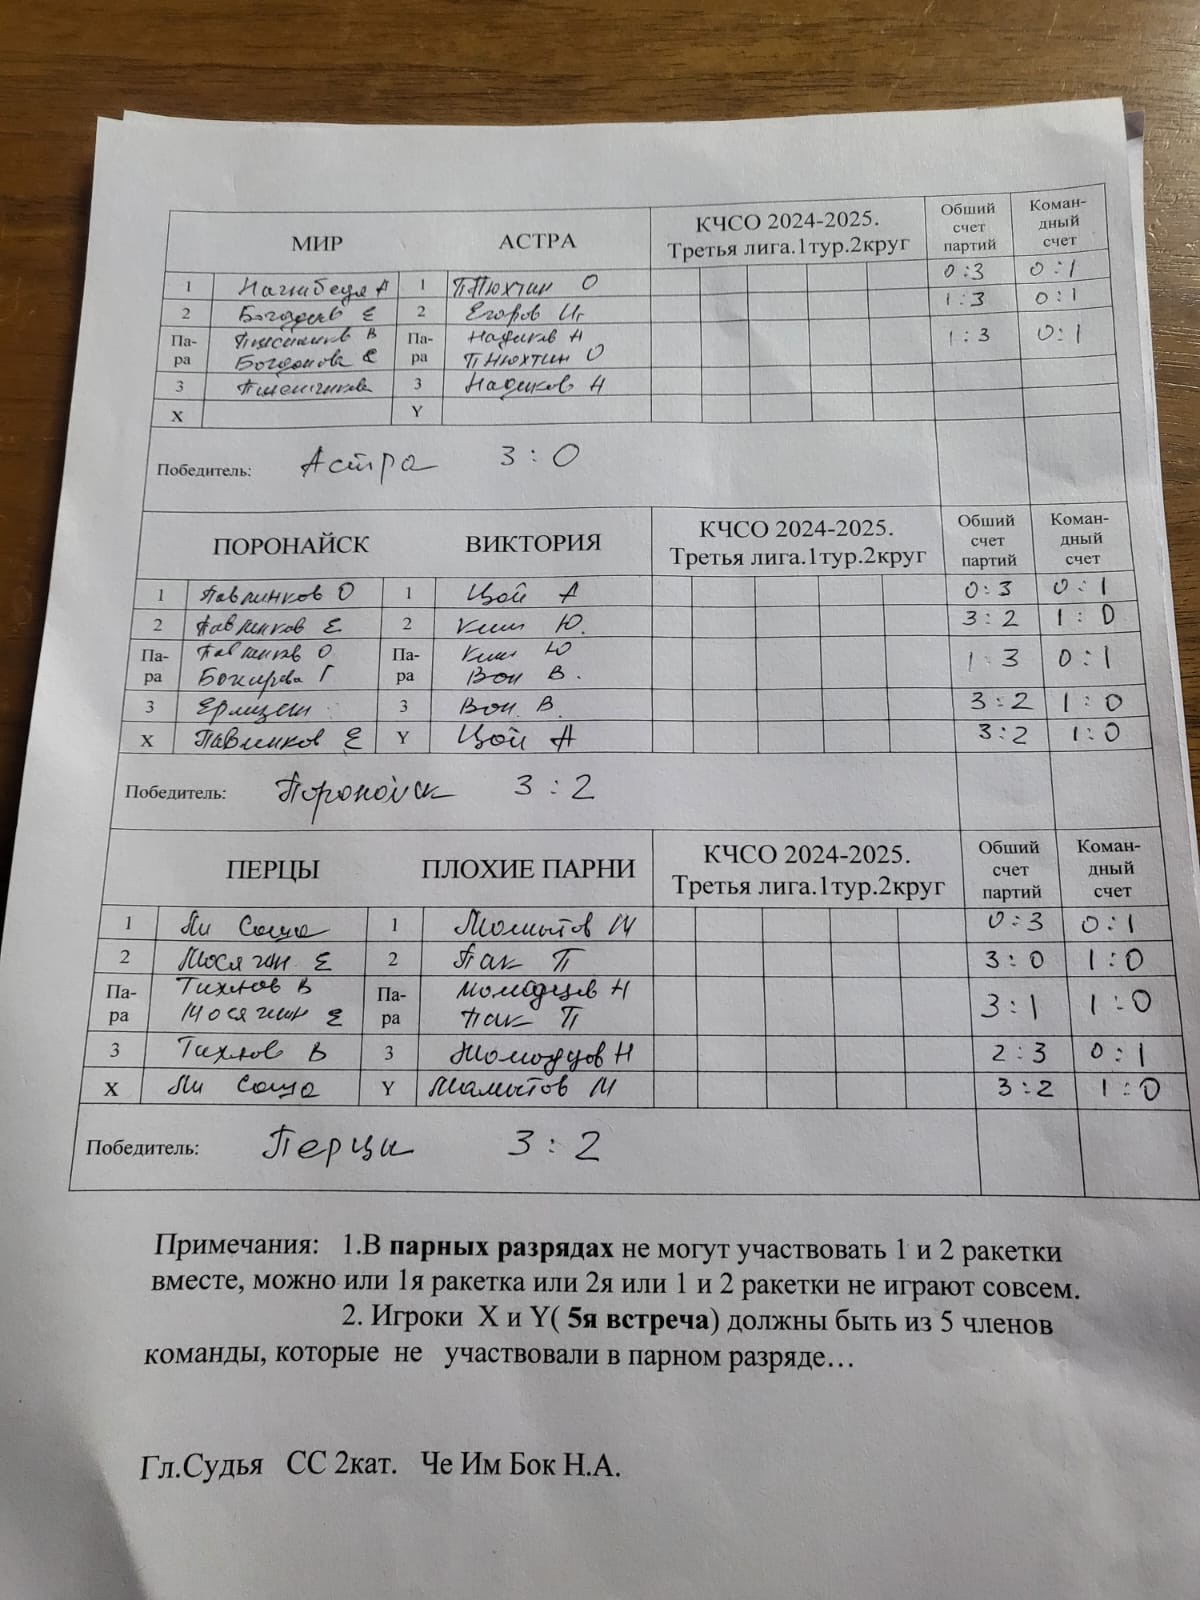 МИР АСТРА КЧСО 2024-2025. Третья лига.1тур.2круг Обший счет партий Коман-дный счет
1 Нагибеда А 1 ПТюхтин О 0:3 0:1
2 Е 2 Егоров Иг 1:3 0:1
Па-ра В Па-ра Надиков Н 1:3 0:1
Богданова Е ПНюхтин О
3 Пшеничникова 3 Надиков Н
X Y
Победитель: Астра 3:0
ПОРОНАЙСК ВИКТОРИЯ КЧСО 2024-2025. Третья лига.1тур.2круг Обший счет партий Коман-дный счет
1 Павленков О 1 Цой А 0:3 0:1
2 Павленков Е 2 Ким Ю. 3:2 1:0
Па-ра Павленков О Па-ра Ким Ю 1:3 0:1
Г Вон В.
3 3 Вон В. 3:2 1:0
X Павленков Е Y Цой А 3:2 1:0
Победитель: Поронайск 3:2
ПЕРЦЫ ПЛОХИЕ ПАРНИ КЧСО 2024-2025. Третья лига.1тур.2круг Обший счет партий Коман-дный счет
1 Ли Саша 1 Мамытов М 0:3 0:1
2 Мосягин Е 2 Пак П 3:0 1:0
Па-ра Тихнов В Па-ра Молодцов Н 3:1 1:0
Мосягин Е Пак П
3 Тихнов В 3 Молодцов Н 2:3 0:1
X Ли Саша Y Мамытов М 3:2 1:0
Победитель: Перцы 3:2
Примечания: 1.В парных разрядах не могут участвовать 1 и 2 ракетки
вместе, можно или 1я ракетка или 2я или 1 и 2 ракетки не играют совсем.
2. Игроки X и Y( 5я встреча) должны быть из 5 членов
команды, которые не участвовали в парном разряде…
Гл.Судья СС 2кат. Че Им Бок Н.А.